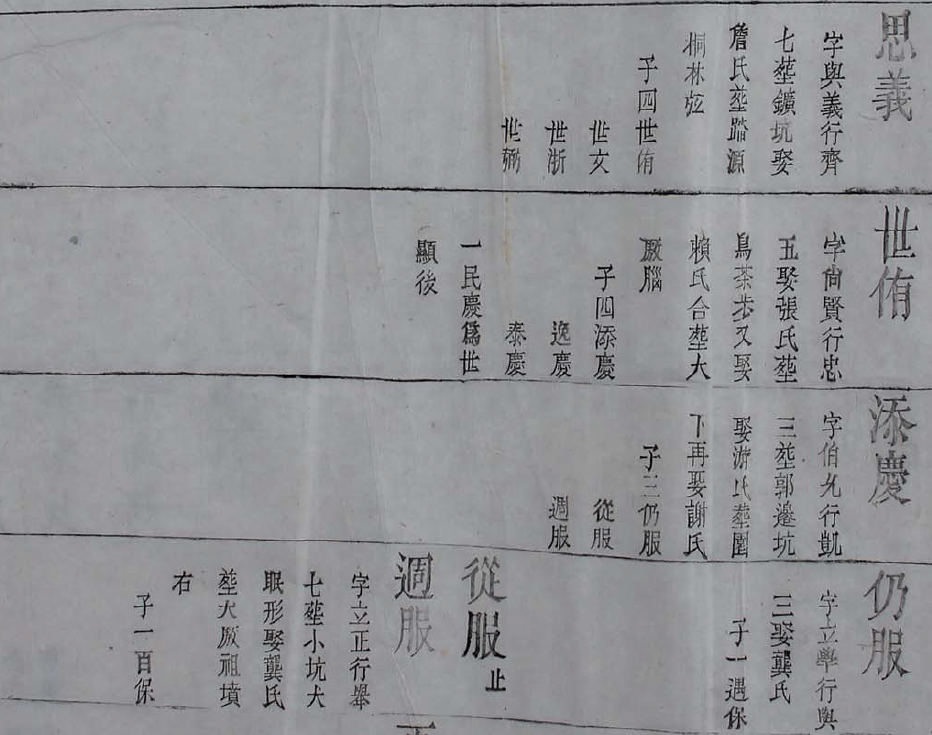 思義
字與義行齊
七塟鑛坑娶
詹氏塟踏源
桐林
子四世侑
世文
世浙
世
世侑
字尚賢行忠
五娶張氏塟
鳥茶步又娶
賴氏合塟大
厰腦
子四添慶
逸慶
泰慶
一民慶爲世
顯後
添慶
字伯允行凱
三塟郭邊坑
娶游氏塟圍
下再娶謝氏
子三仍服
從服
週服
仍服
字立學行與
三娶龔氏
子一遇保
從服止
週服
字立正行舉
七塟小坑犬
眠形娶龔氏
塟大厰祖墳
右
子一百保